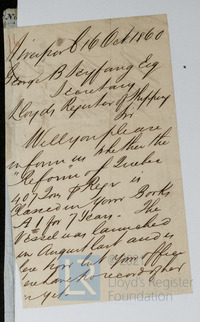 Liverpool 16 Oct 1860
George B Seyfang Esq
Secretary
Lloyds Register of Shipping
Sir
Will you please
inform us whether the
"Reform" of Quebec
407 Tons p Regr is
Classed in your Books
A 1 for 7 Years. The
Vessel was launched
in August last and is
here now but your office
here has no record of her
as yet.
Lloyd's Register
Foundation